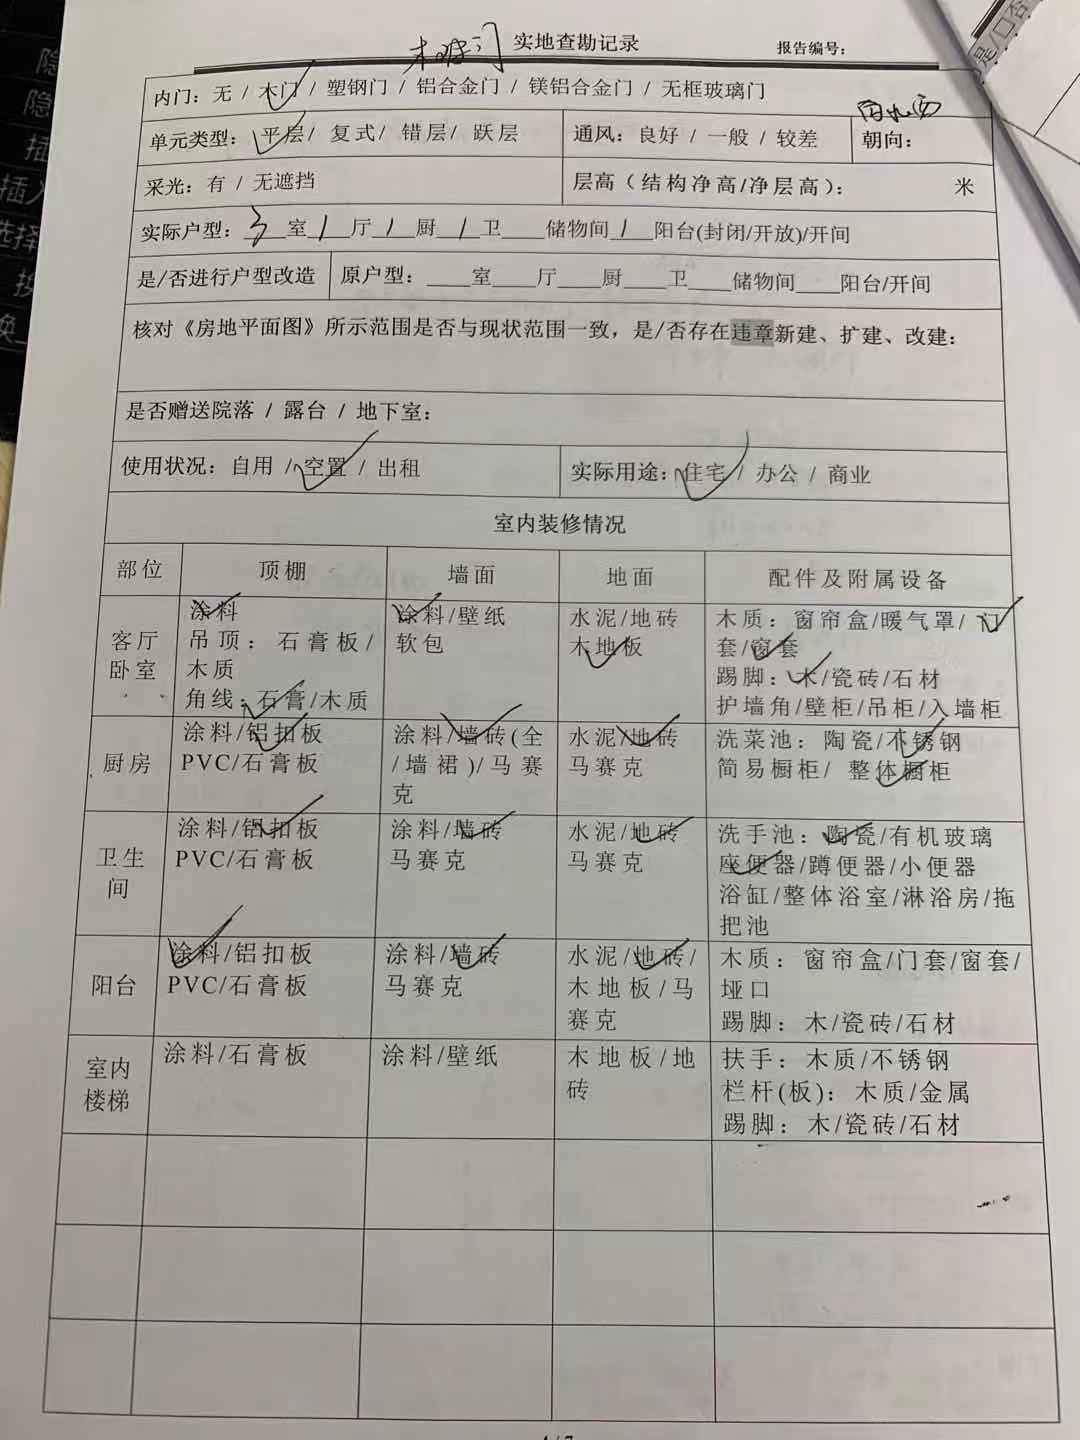 实地查勘记录
报告编号：
内门：无 / 木门 / 塑钢门 / 铝合金门 / 镁铝合金门 / 无框玻璃门
单元类型：平层 / 复式 / 错层 / 跃层 通风：良好 / 一般 / 较差 朝向：
采光：有 / 无遮挡 层高（结构净高/净层高）： 米
实际户型：3室1厅1厨1卫____储物间1阳台(封闭/开放)/开间
是/否进行户型改造 原户型：____室____厅____厨____卫____储物间____阳台/开间
核对《房地平面图》所示范围是否与现状范围一致，是/否存在违章新建、扩建、改建：
是否赠送院落 / 露台 / 地下室：
使用状况：自用 / 空置 / 出租 实际用途：住宅 / 办公 / 商业
室内装修情况
部位 顶棚 墙面 地面 配件及附属设备
客厅
卧室
涂料
吊顶：石膏板/
木质
角线：石膏/木质
涂料/壁纸
软包
水泥/地砖
木地板
木质：窗帘盒/暖气罩/门
套/窗套
踢脚：木/瓷砖/石材
护墙角/壁柜/吊柜/入墙柜
厨房
涂料/铝扣板
PVC/石膏板
涂料/墙砖(全
/墙裙)/马赛
克
水泥/地砖
马赛克
洗菜池：陶瓷/不锈钢
简易橱柜/ 整体橱柜
卫生
间
涂料/铝扣板
PVC/石膏板
涂料/墙砖
马赛克
水泥/地砖
马赛克
洗手池：陶瓷/有机玻璃
座便器/蹲便器/小便器
浴缸/整体浴室/淋浴房/拖
把池
阳台
涂料/铝扣板
PVC/石膏板
涂料/墙砖
马赛克
水泥/地砖/
木地板/马
赛克
木质：窗帘盒/门套/窗套/
垭口
踢脚：木/瓷砖/石材
室内
楼梯
涂料/石膏板
涂料/壁纸
木地板/地
砖
扶手：木质/不锈钢
栏杆(板)：木质/金属
踢脚：木/瓷砖/石材